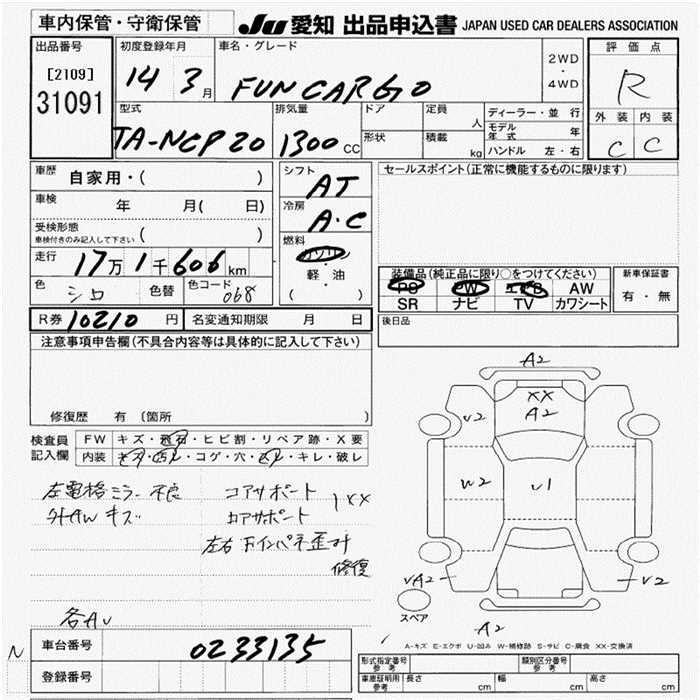 車内保管・守衛保管
JU 愛知 出品申込書 JAPAN USED CAR DEALERS ASSOCIATION
出品番号
[2109]
31091
初度登録年月
14 3月
車名・グレード
FUNCARGO
2WD
・
4WD
評価点
R
外装 内装
C C
型式
TA-NCP20
排気量
1300cc
ドア
形状
定員 人
積載 kg
ディーラー・並行
モデル年式 年
ハンドル 左・右
車歴
自家用・( )
車検
年 月( 日)
受検形態
車検付きのみ記入して下さい ( )
走行
17万1千606km
色 シロ 色替 色コード 068
R券 10210 円 名変通知期限 月 日
シフト
AT
冷房
A・C
燃料
ガソリン
・
軽・油
( )
セールスポイント(正常に機能するものに限ります)
装備品(純正品に限り○をつけてください)
PS PW エアB AW
SR ナビ TV カワシート
新車保証書
有・無
後日品
注意事項申告欄(不具合内容等は具体的に記入して下さい)
修復歴 有 (箇所
検査員
記入欄
FW キズ・飛石・ヒビ割・リペア跡・X要
内装 キズ・汚れ・コゲ・穴・スレ・キレ・破レ
左電格ミラー不良
外AWキズ
コアサポート
ロアサポート
1XX
左右 下インパネ歪み
修復
各AV
A2
XX
A2
V2
W2
U1
VA2
V2
A2
スペア
A-キズ E-エクボ U-凹み W-補修跡 S-サビ C-腐食 XX-交換済
N
車台番号 0233135
登録番号
型式指定番号
参考
類別区分番号
参考
車庫証明用
参考
長さ cm 幅 cm 高さ cm